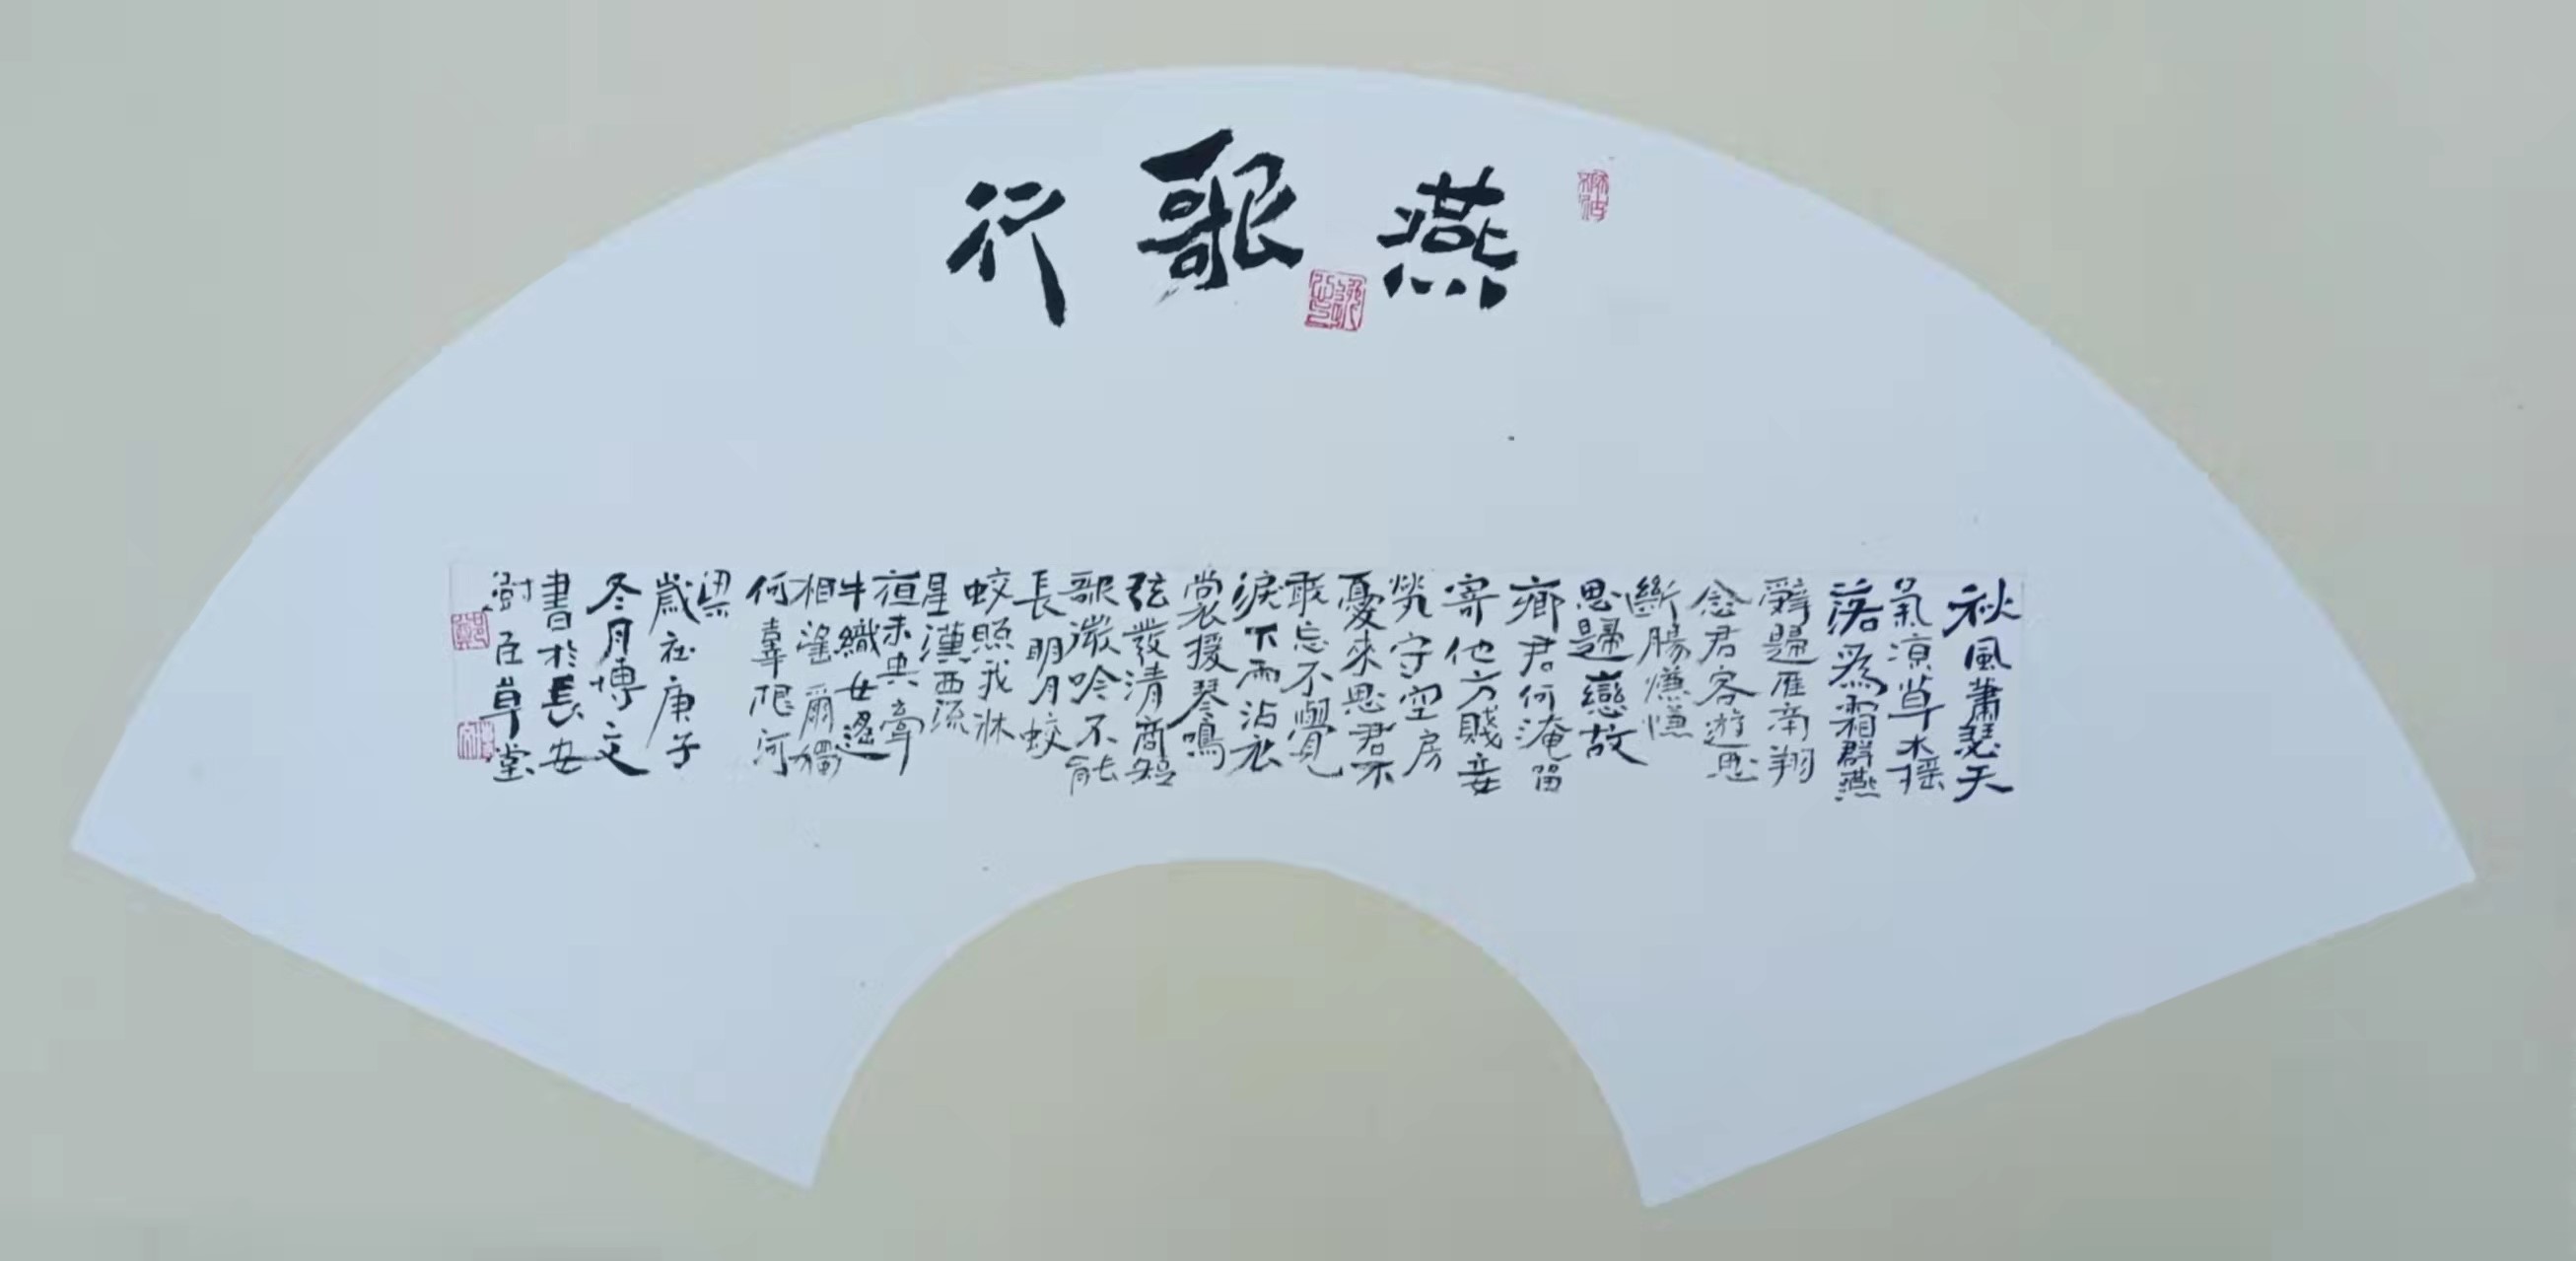 燕歌行
秋風蕭瑟天
氣涼草木摇
落爲霜群燕
辭歸雁南翔
念君客遊思
斷腸慊慊
思歸戀故
鄉君何淹留
寄他方賤妾
煢守空房
憂來思君不
敢忘不覺
淚下而沾衣
裳援琴鳴
弦發清商短
歌微吟不能
長明月蛟
蛟照我牀
星漢西流
夜未央牽
牛織女遙
相望爾獨
何辜限河
梁
歲在庚子
冬月博文
書於長安
草堂